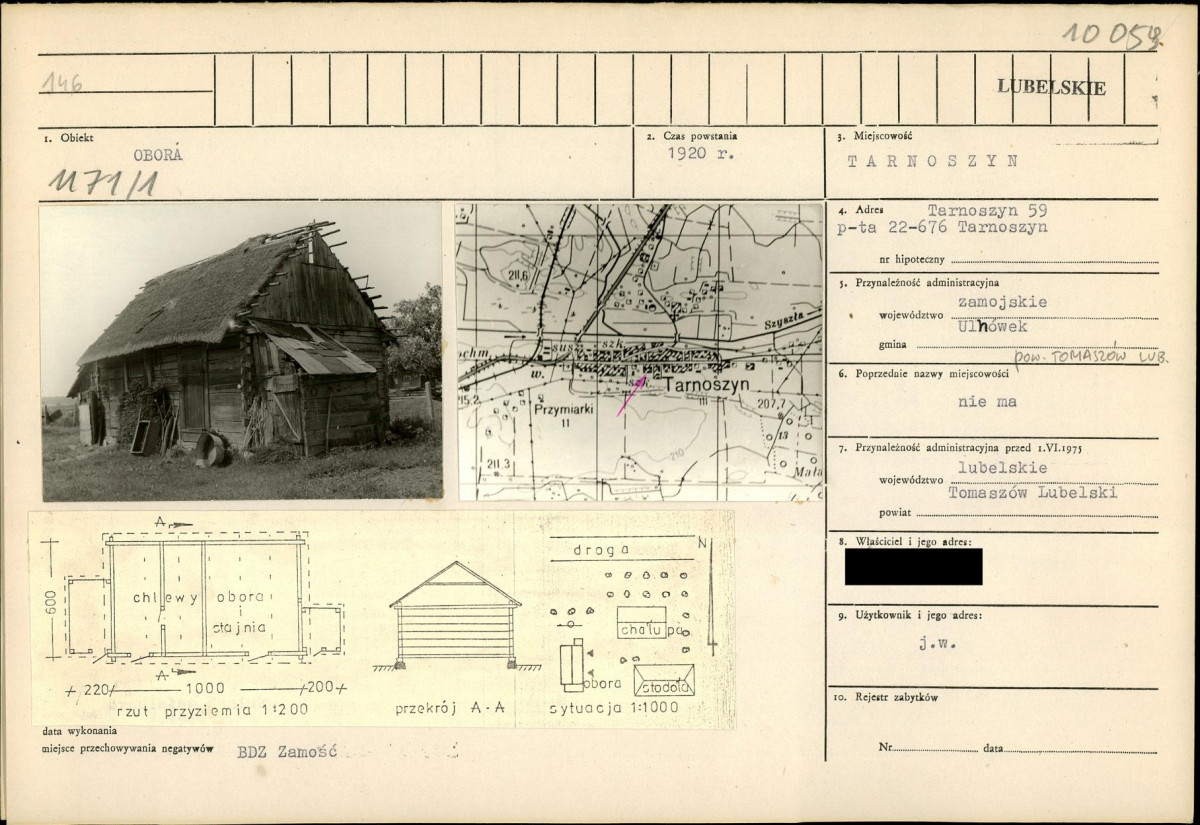 10 059
146
LUBELSKIE
1. Obiekt
OBORA
1171/1
2. Czas powstania
1920 r.
3. Miejscowość
TARNOSZYN
4. Adres Tarnoszyn 59
p-ta 22-676 Tarnoszyn
nr hipoteczny
5. Przynależność administracyjna
zamojskie
województwo
Ulhówek
gmina
pow. TOMASZÓW LUB.
6. Poprzednie nazwy miejscowości
nie ma
7. Przynależność administracyjna przed 1.VI.1975
lubelskie
województwo
Tomaszów Lubelski
powiat
8. Właściciel i jego adres:
9. Użytkownik i jego adres:
j.w.
10. Rejestr zabytków
Nr data
211,6
Szyszła
ochm
susz
szk
w.
Tarnoszyn
111
215,2
Przymiarki
11
207,7
13
210
211,3
Mała
A
600
chlewy
obora
i
stajnia
A
220
1000
200
rzut przyziemia 1:200
przekrój A-A
droga
N
chałupa
obora
stodoła
sytuacja 1:1000
data wykonania
miejsce przechowywania negatywów BDZ Zamość